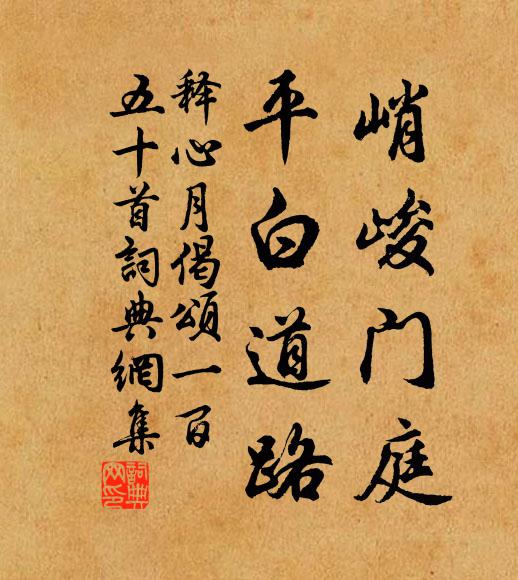 峭峻门庭
平白道路
释心月偈颂一百
五十首詞典網集
詞典
网印